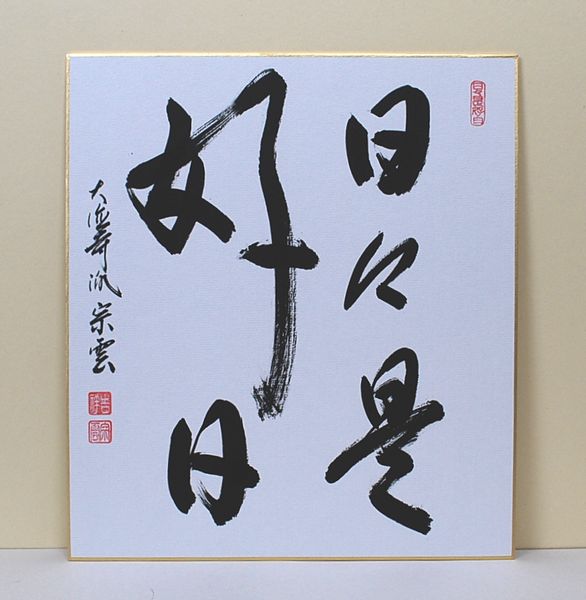 日々是
好日
大徳寿派宗雲